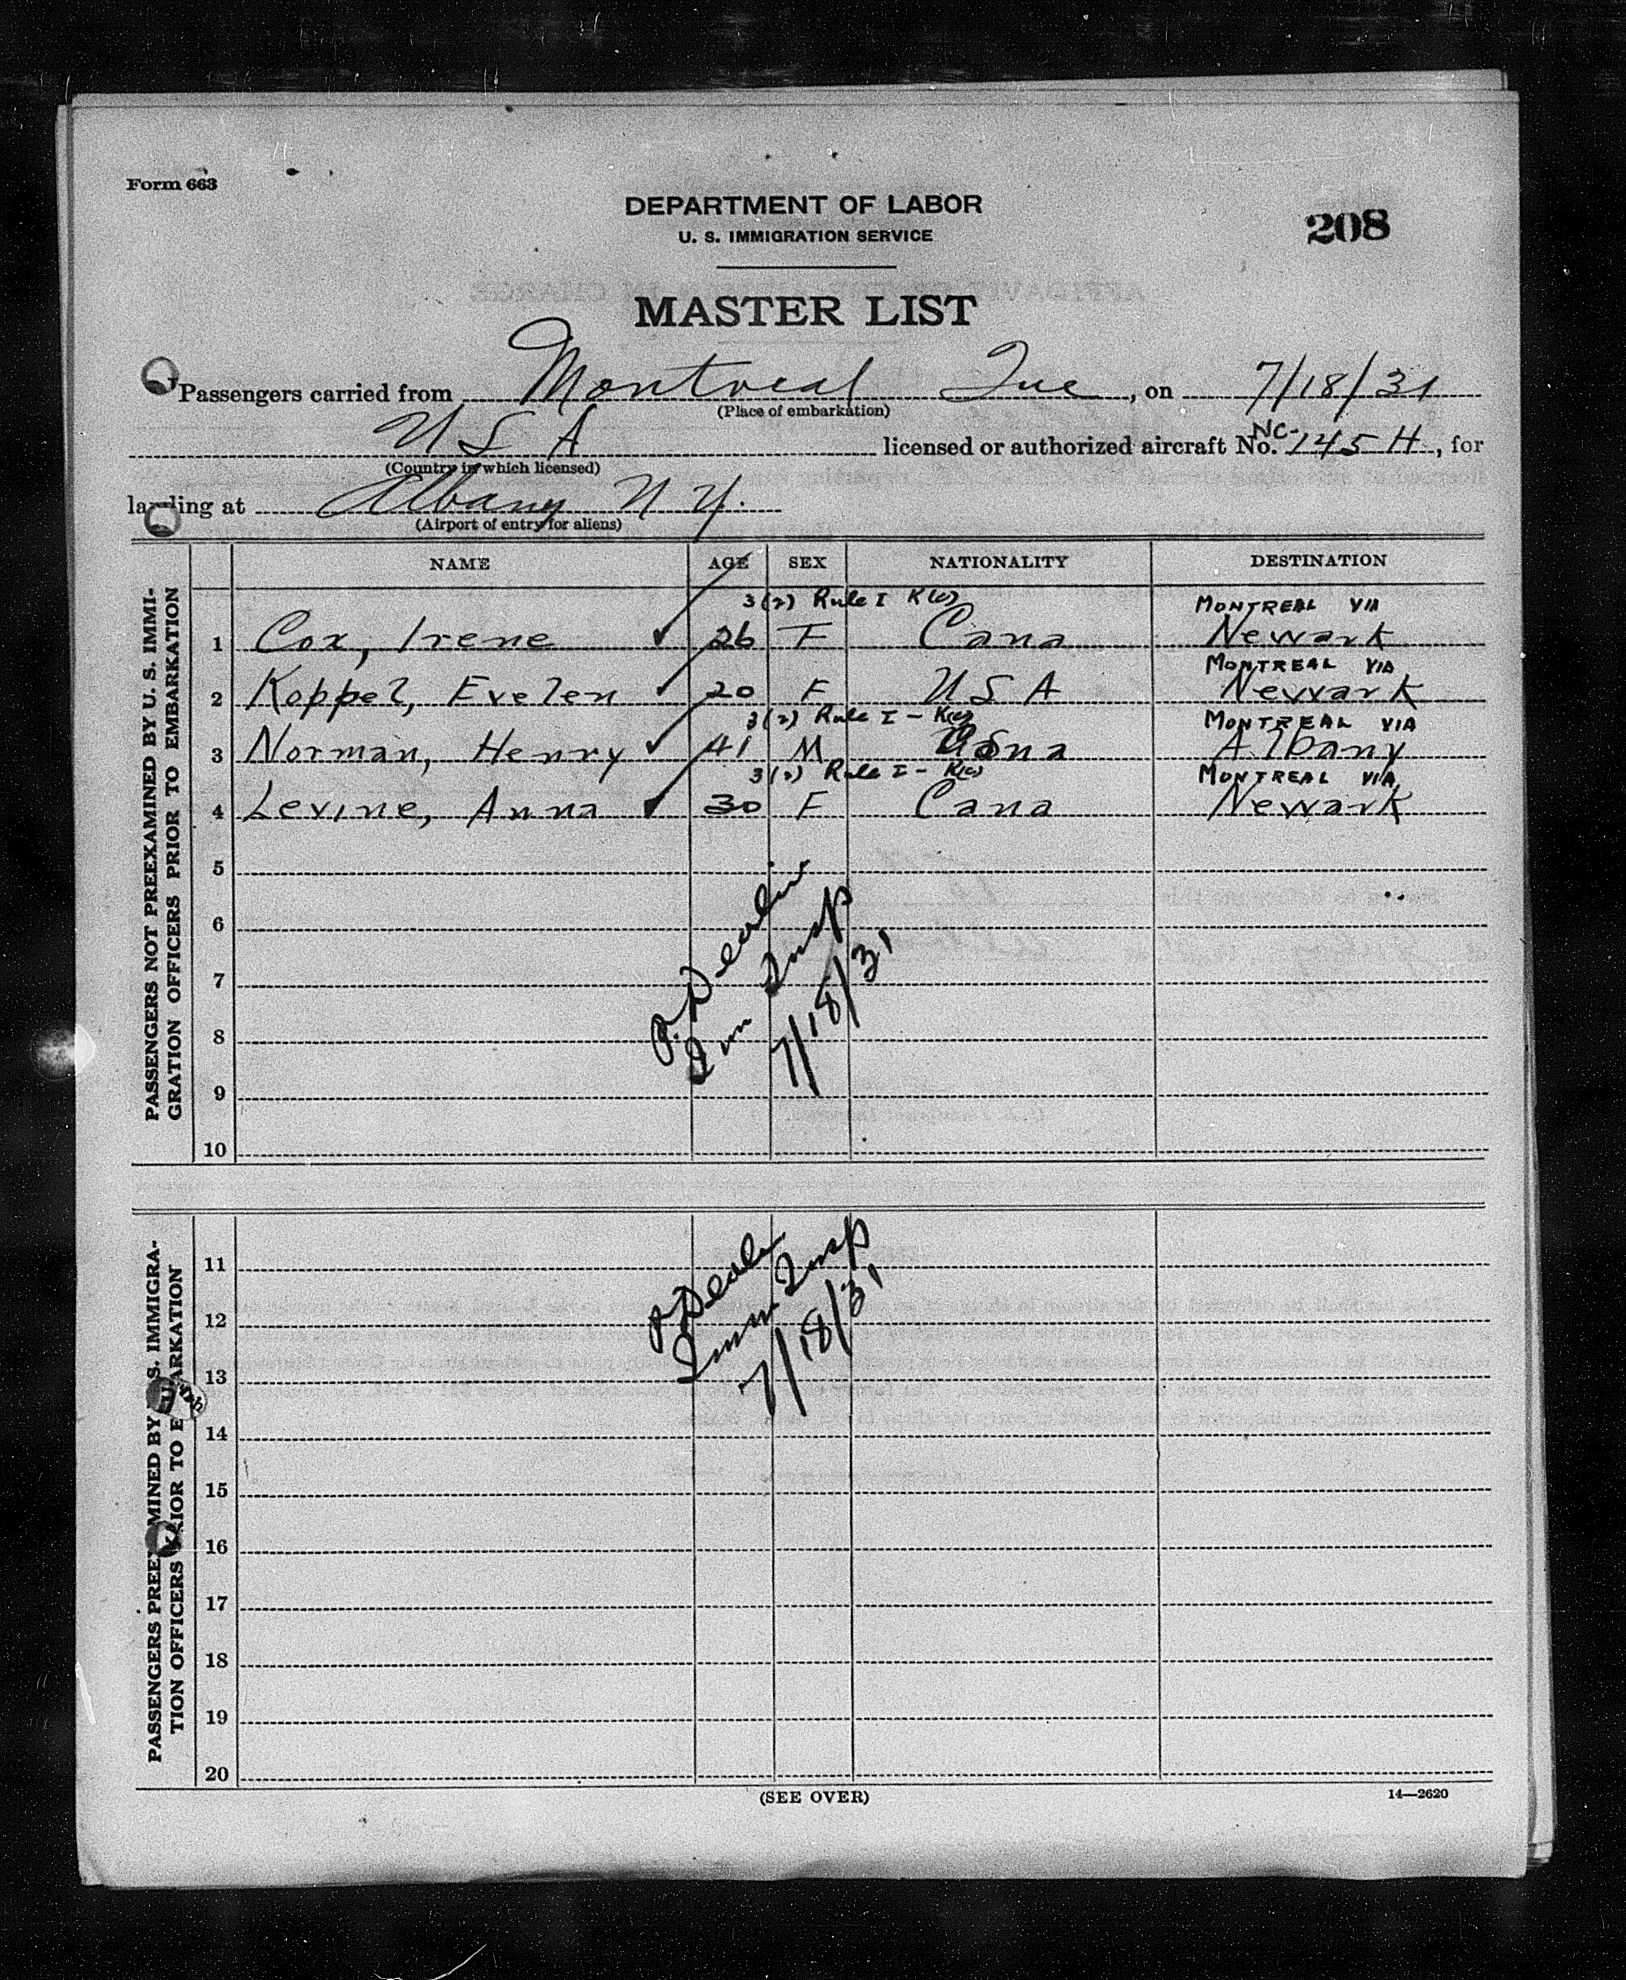 Form 663
DEPARTMENT OF LABOR
U. S. IMMIGRATION SERVICE
208
MASTER LIST
Passengers carried from Montreal Que, on 7/18/31
(Place of embarkation)
U S A licensed or authorized aircraft No. NC-145H, for
(Country in which licensed)
landing at Albany N Y.
(Airport of entry for aliens)
NAME AGE SEX NATIONALITY DESTINATION
PASSENGERS NOT PREEXAMINED BY U. S. IMMI-
GRATION OFFICERS PRIOR TO EMBARKATION
3(2) Rule I K(c) MONTREAL VIA
1 Cox, Irene ✓ 26 F Cana Newark
MONTREAL VIA
2 Koppel, Evelen ✓ 20 F U S A Newark
3(2) Rule I - K(c) MONTREAL VIA
3 Norman, Henry ✓ 41 M Albany
3(2) Rule I - K(c) MONTREAL VIA
4 Levine, Anna ✓ 30 F Cana Newark
5
6
7
8
9
10
Imm Insp
7/18/31
PASSENGERS PREEXAMINED BY U. S. IMMIGRA-
TION OFFICERS PRIOR TO EMBARKATION
11
12
13
14
15
16
17
18
19
20
Imm Insp
7/18/31
(SEE OVER)
14—2620